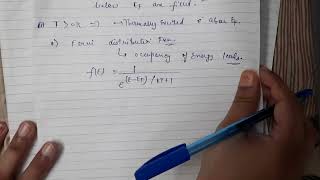 below EF are filled.
ii) T > 0K → Thermally Excited e⁻ above EF.
2) Fermi distribution Fxn.
↳ occupancy of Energy levels.
f(E) = 1
e^(E-EF)/kT + 1